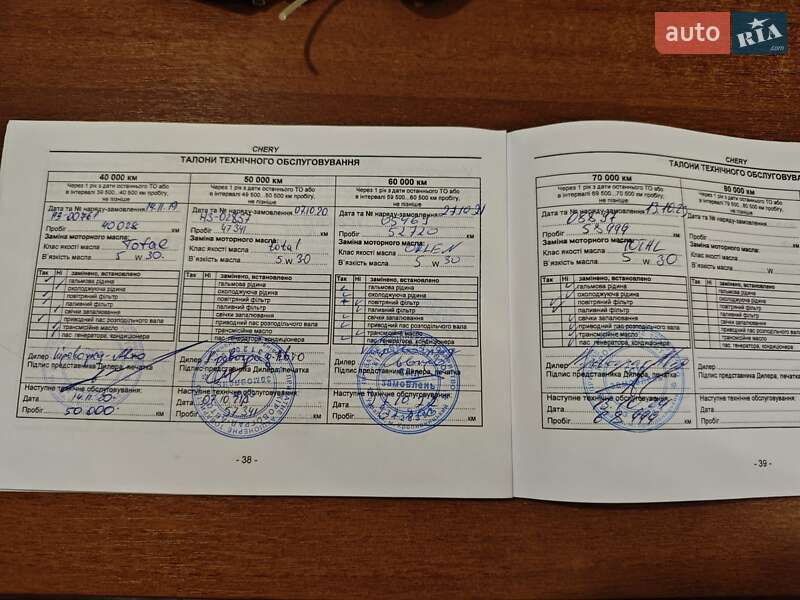 auto RIA
.com
CHERY
ТАЛОНИ ТЕХНІЧНОГО ОБСЛУГОВУВАННЯ
40 000 км
Через 1 рік з дати останнього ТО або
в інтервалі 39 500...40 500 км пробігу,
не пізніше
Дата та № наряду-замовлення 14.11.19
Пробіг 40028 км
Заміна моторного масла:
Клас якості масла Total
В`язкість масла 5 W 30
Так Ні замінено, встановлено
гальмова рідина
охолоджуюча рідина
повітряний фільтр
паливний фільтр
свічки запалювання
приводний пас розподільчого вала
трансмісійне масло
пас генератора, кондиціонера
Дилер
Підпис представника Дилера, печатка
Наступне технічне обслуговування:
Дата 14.11.20
Пробіг 50 000 км
50 000 км
Через 1 рік з дати останнього ТО або
в інтервалі 49 500...50 500 км пробігу,
не пізніше
Дата та № наряду-замовлення 07.10.20
Пробіг 47341 км
Заміна моторного масла:
Клас якості масла total
В`язкість масла 5 W 30
Так Ні замінено, встановлено
гальмова рідина
охолоджуюча рідина
повітряний фільтр
паливний фільтр
свічки запалювання
приводний пас розподільчого вала
трансмісійне масло
пас генератора, кондиціонера
Дилер
Підпис представника Дилера, печатка
Наступне технічне обслуговування:
Дата
Пробіг 57341 км
60 000 км
Через 1 рік з дати останнього ТО або
в інтервалі 59 500...60 500 км пробігу,
не пізніше
Дата та № наряду-замовлення 27.10.21
Пробіг 52720 км
Заміна моторного масла:
Клас якості масла ORLEN
В`язкість масла 5 W 30
Так Ні замінено, встановлено
гальмова рідина
охолоджуюча рідина
повітряний фільтр
паливний фільтр
свічки запалювання
приводний пас розподільчого вала
трансмісійне масло
пас генератора, кондиціонера
Дилер
Підпис представника Дилера, печатка
Наступне технічне обслуговування:
Дата
Пробіг км
- 38 -
CHERY
ТАЛОНИ ТЕХНІЧНОГО ОБСЛУГОВУВА
70 000 км
Через 1 рік з дати останнього ТО або
в інтервалі 69 500...70 500 км пробігу,
не пізніше
Дата та № наряду-замовлення
Пробіг 58999 км
Заміна моторного масла:
Клас якості масла TOTAL
В`язкість масла 5 W 30
Так Ні замінено, встановлено
гальмова рідина
охолоджуюча рідина
повітряний фільтр
паливний фільтр
свічки запалювання
приводний пас розподільчого вала
трансмісійне масло
пас генератора, кондиціонера
Дилер
Підпис представника Дилера, печатка
Наступне технічне обслуговування:
Дата
Пробіг 68999 км
80 000 км
Через 1 рік з дати останнього ТО
в інтервалі 79 500...80 500 км пробігу
не пізніше
Дата та № наряду-замовлення
Пробіг
Заміна моторного масла:
Клас якості масла
В`язкість масла W
Так Ні замінено, встановлено
гальмова рідина
охолоджуюча рідина
повітряний фільтр
паливний фільтр
свічки запалювання
приводний пас розподільчого
трансмісійне масло
пас генератора, кондиціонера
Дилер
Підпис представника Дилера, печатка
Наступне технічне обслуговування
Дата
Пробіг
- 39 -